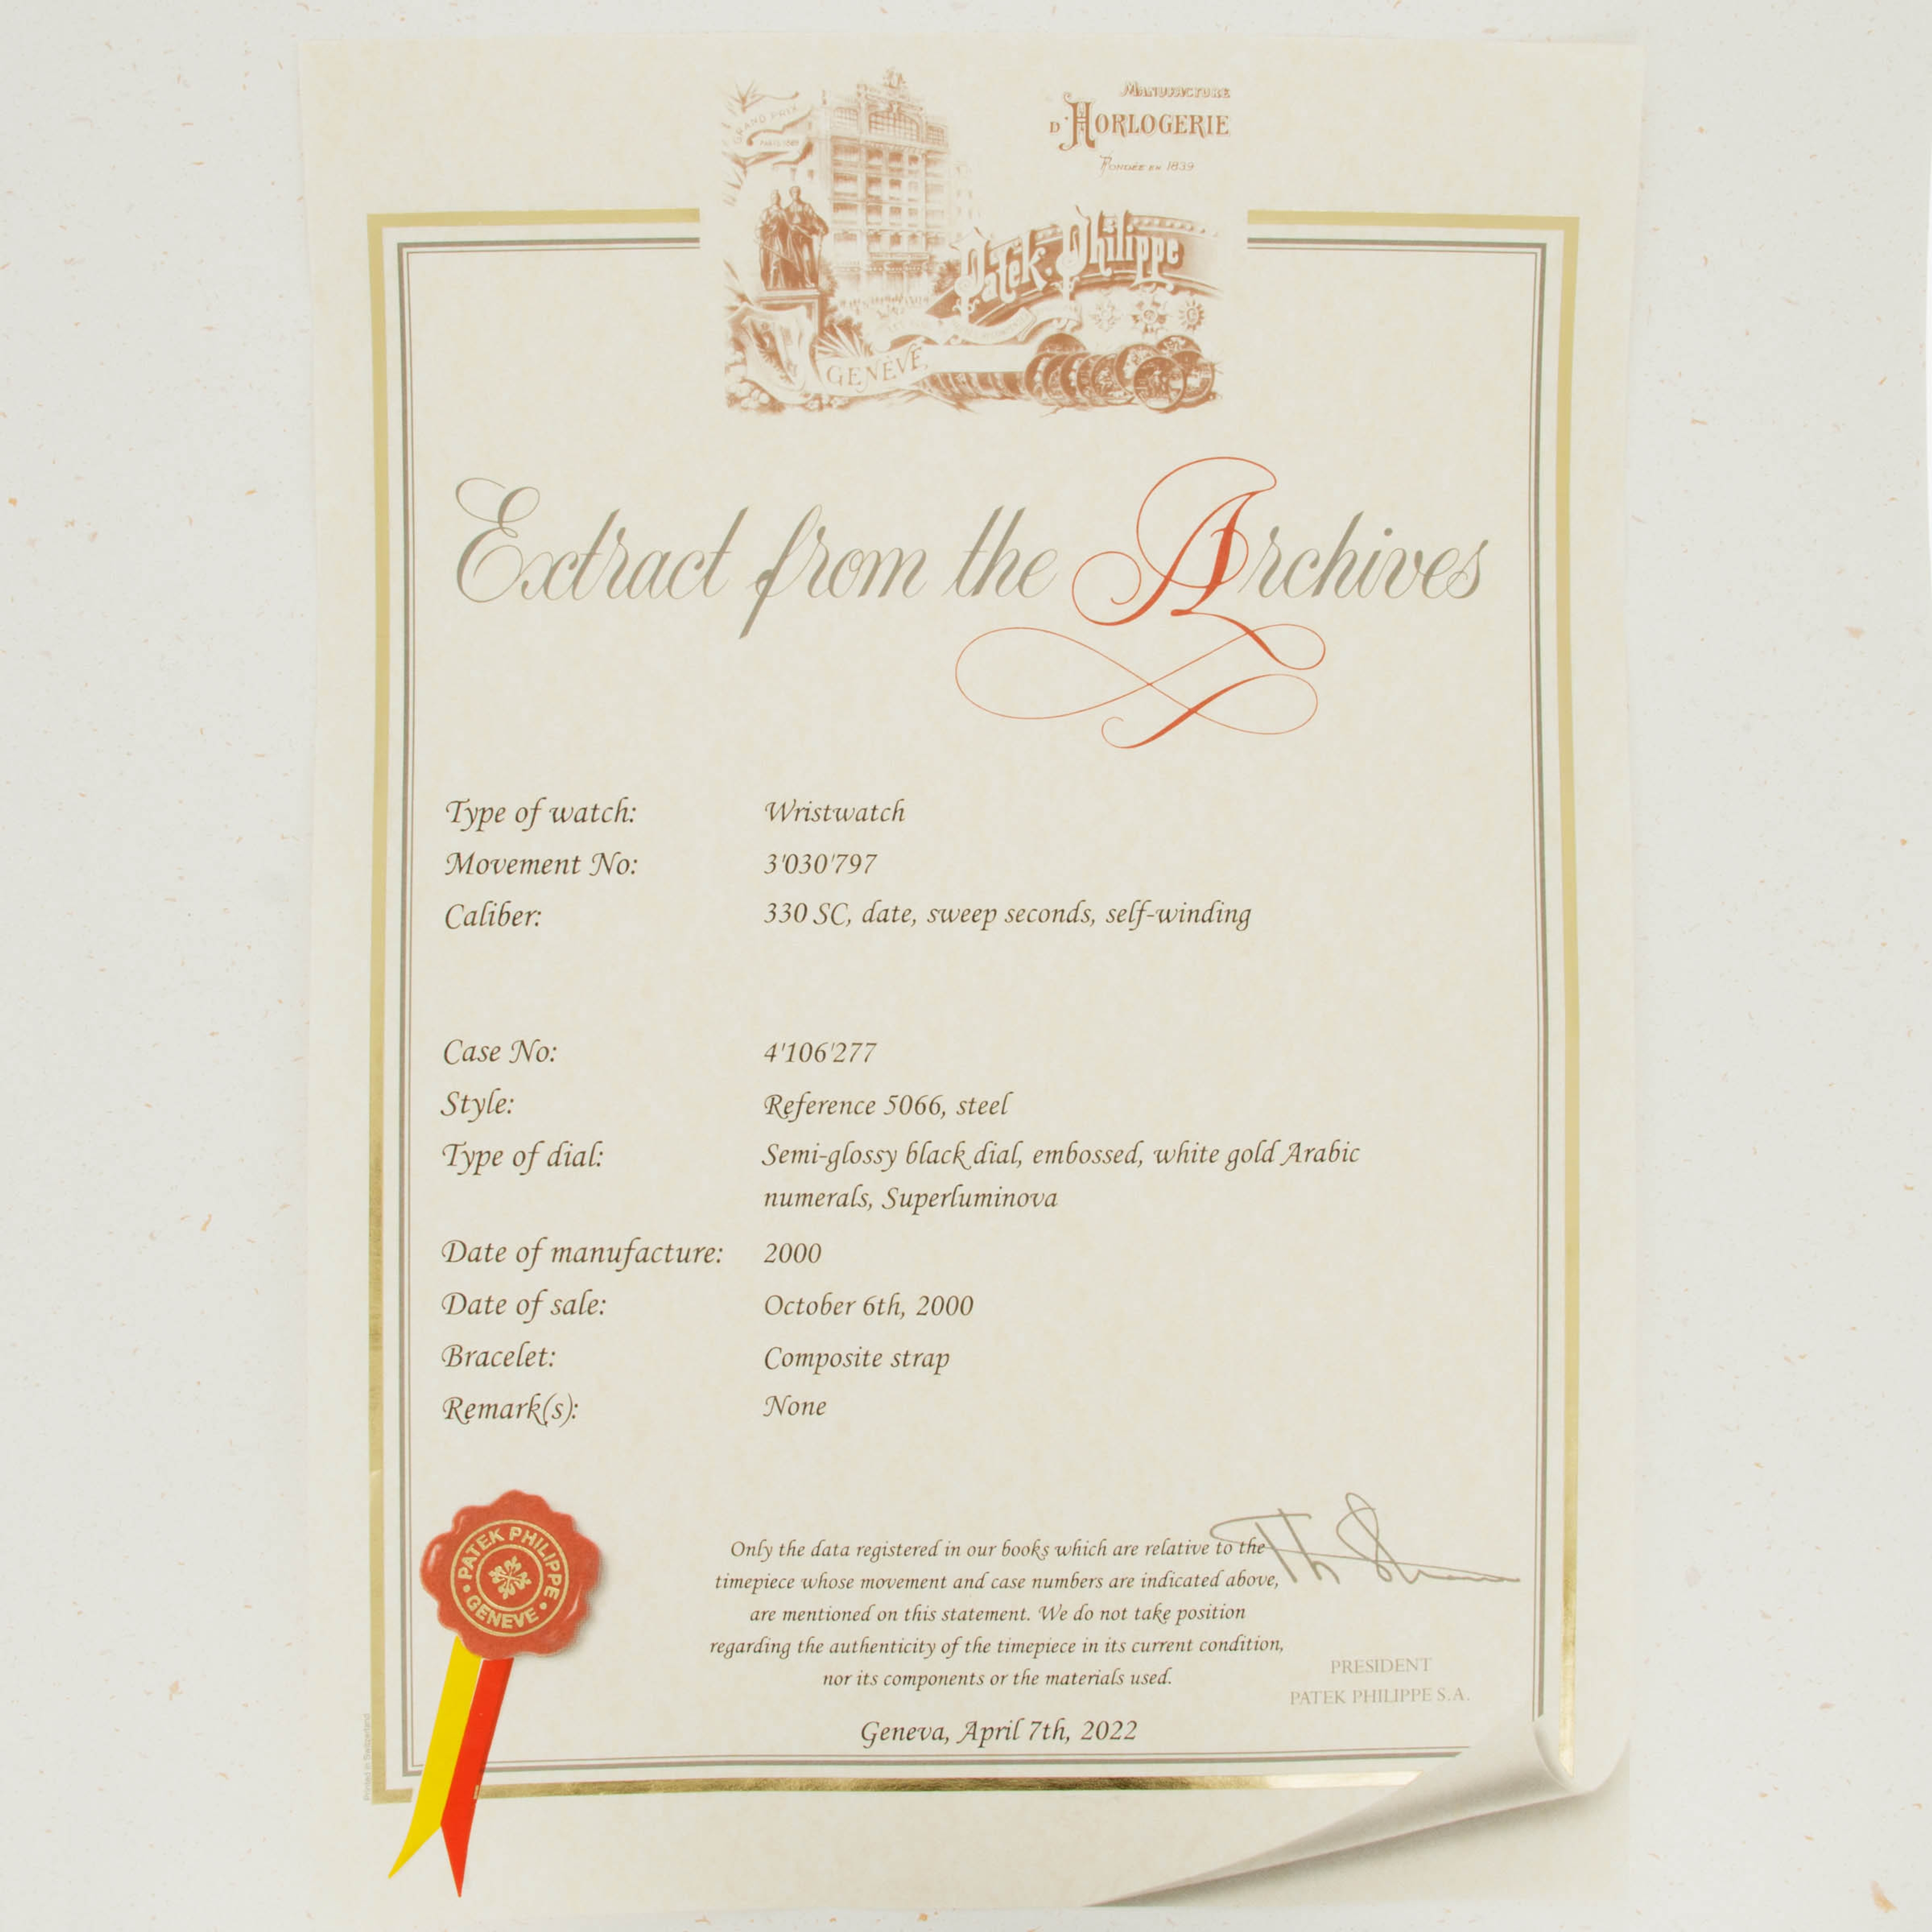 MANUFACTURE
D'HORLOGERIE
FONDÉE EN 1839
GRAND PRIX
Patek Philippe
GENÈVE
Extract from the Archives
Type of watch: Wristwatch
Movement No: 3'030'797
Caliber: 330 SC, date, sweep seconds, self-winding
Case No: 4'106'277
Style: Reference 5066, steel
Type of dial: Semi-glossy black dial, embossed, white gold Arabic
numerals, Superluminova
Date of manufacture: 2000
Date of sale: October 6th, 2000
Bracelet: Composite strap
Remark(s): None
PATEK PHILIPPE
GENEVE
Only the data registered in our books which are relative to the
timepiece whose movement and case numbers are indicated above,
are mentioned on this statement. We do not take position
regarding the authenticity of the timepiece in its current condition,
nor its components or the materials used.
PRESIDENT
PATEK PHILIPPE S.A.
Geneva, April 7th, 2022
Printed in Switzerland